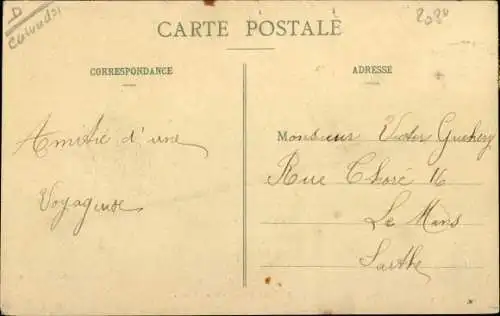 D
CARTE POSTALE
CORRESPONDANCE
ADRESSE
Amitié d'une
Voyageuse
Monsieur Victor
Rue Choré 16
Le Mans
Sarthe